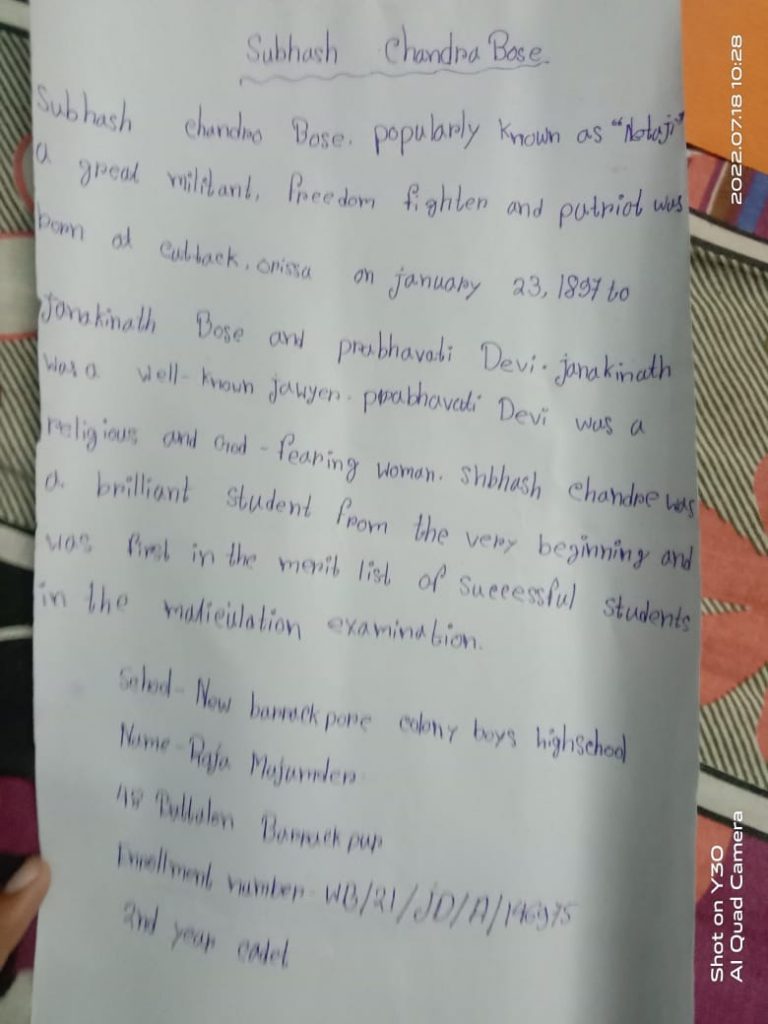 Subhash Chandra Bose.
Subhash chandra Bose. popularly known as "Netaji"
a great militant, freedom fighter and patriot was
born at cuttack, orissa on january 23, 1897 to
Janakinath Bose and prabhavati Devi. janakinath
was a well-known jawyer. prabhavati Devi was a
religious and God-fearing woman. Shbhash chandre was
a brilliant student from the very beginning and
was first in the merit list of successful students
in the matriculation examination.
School- New barrackpore colony boys highschool
Name- Raja Majumder
48 Battalon Barrackpur
Enrollment number- WB/21/JD/A/146975
2nd year cadet
2022.07.18 10:28
Shot on Y30
AI Quad Camera